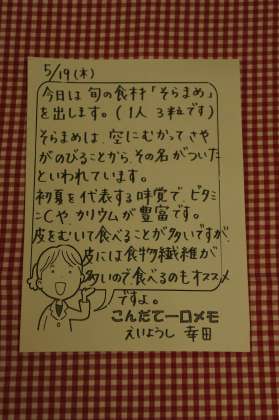 5/19(木)
今日は旬の食材「そらまめ」
を出します。(1人 3粒です)
そらまめは、空にむかってさや
がのびることから、その名がついた
といわれています。
初夏を代表する味覚で、ビタミ
ンCや カリウムが豊富です。
皮をむいて食べることが多いですが、
皮には食物繊維が
多いので、食べるのもオススメ
ですよ。
こんだて一口メモ
えいようし 幸田